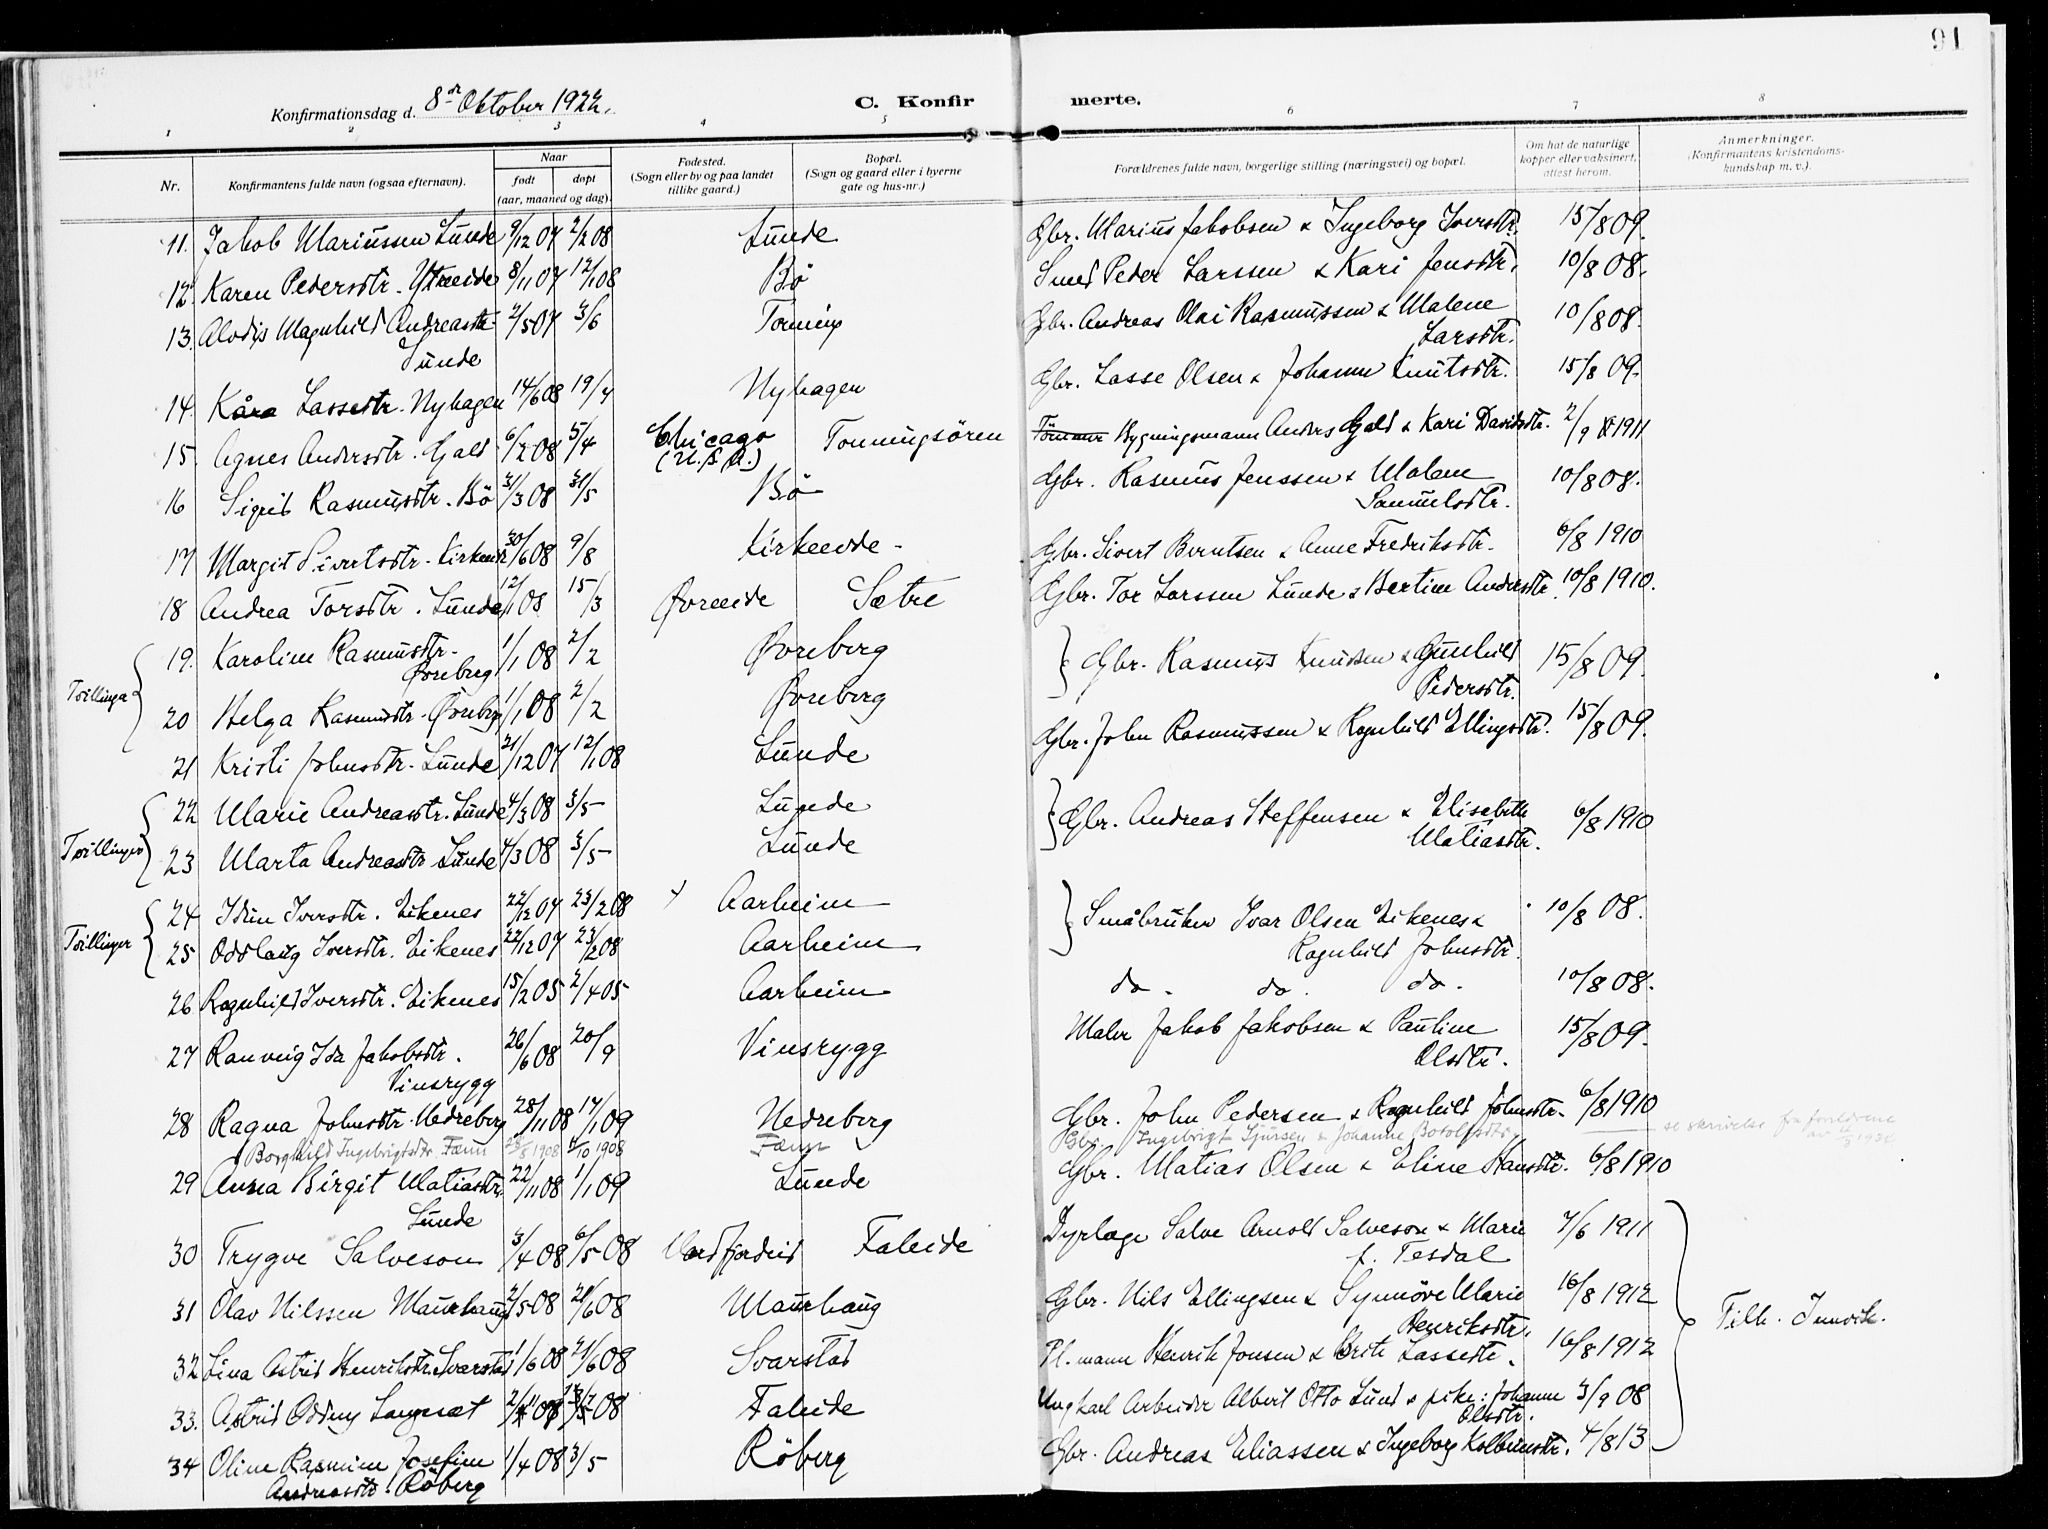 91
Konfirmationsdag d. 8de Oktober 1922.
C. Konfirmerte.
1 2 3 4 5 6 7 8
Nr. Konfirmantens fulde navn (ogsaa efternavn). Naar født døpt (aar, maaned og dag). Fødested. (Sogn eller by og paa landet tillike gaard.) Bopæl. (Sogn og gaard eller i byerne gate og hus-nr.) Forældrenes fulde navn, borgerlige stilling (næringsvei) og bopæl. Om hat de naturlige kopper eller vaksinert, attest herom. Anmerkninger. (Konfirmantens kristendomskundskap m. v.).
11. Jakob Mariussen Lunde 9/12 07 2/2 08 Lunde Gbr. Marius Jakobsen & Ingeborg Iversdtr. 15/8 09.
12. Karen Pedersdtr. Ytreeide 8/11 07 12/1 08 Bö Smed Peder Larssen & Kari Jensdtr. 10/8 08.
13. Alvdis Magnhild Andreasdtr. 2/5 07 3/6 Tonning Gbr. Andreas Olai Rasmussen & Malene 10/8 08.
Lunde Larsdtr.
14. Kåra Lassestr. Nyhagen 14/6 08 19/7 Nyhagen Gbr. Lasse Olsen & Johanne Knutsdtr. 15/8 09.
15. Agnes Andersdtr. Gald 6/2 08 5/4 Chicago Tonningsören Bygningsmann Anders Gald & Kari Davidsdtr. 2/9 1911
(U.S.A.)
16 Sigrid Rasmusdtr. Bö 31/3 08 31/5 Bö Gbr. Rasmus Jenssen & Malene 10/8 08.
Samuelsdtr.
17 Margit Sivertsdtr. Kirkeeide 30/6 08 9/8 Kirkeeide Gbr. Sivert Berntsen & Anne Fredriksdtr. 6/8 1910
18 Andrea Torsdtr. Lunde 12/1 08 15/3 Övreeide Sætre Gbr. Tor Larssen Lunde & Bertine Andersdtr. 10/8 1910.
Tvillinger
19. Karoline Rasmusdtr. 1/1 08 2/2 Övreberg Gbr. Rasmus Knudsen & Gunhild 15/8 09.
Övreberg Pedersdtr.
20 Helga Rasmusdtr. Övreberg 1/1 08 2/2 Övreberg
21 Kristi Johnsdtr. Lunde 21/12 07 12/1 08 Lunde Gbr. John Rasmussen & Ragnhild Ellingsdtr. 15/8 09.
Tvillinger
22 Marie Andreasdtr. Lunde 4/3 08 3/5 Lunde Gbr. Andreas Steffensen & Elisebeth 6/8 1910
23 Marta Andreasdtr. Lunde 4/3 08 3/5 Lunde Matiasdtr.
Tvillinger
24 Idun Iversdtr. Eikenes 22/12 07 23/2 08 Aarheim Småbruker Ivar Olsen Eikenes & 10/8 08.
25 Oddlaug Iversdtr. Eikenes 22/12 07 23/2 08 Aarheim Ragnhild Johnsdtr.
26 Ragnhild Iversdtr. Eikenes 15/2 05 2/4 05 Aarheim do. do. do. 10/8 08.
27 Ranveig Ida Jakobsdtr. 26/6 08 20/9 Vinsrygg Maler Jakob Jakobsen & Pauline 15/8 09.
Vinsrygg Olsdtr.
28 Ragna Johnsdtr. Nedreberg 28/11 08 17/1 09 Nedreberg Gbr. John Pedersen & Ragnhild Johnsdtr. 6/8 1910
Borghild Ingebrigtsdtr. Fænn 8/1908 4/10 1908 Fænn Gbr. Ingebrigt Sjursen & Johanne Botolfsdtr. se skrivelse fra foreldrene
29 Anna Birgit Matiasdtr. 22/11 08 1/1 09 Lunde Gbr. Matias Olsen & Eline Hansdtr. 6/8 1910
Lunde
30 Trygve Salveson 3/4 08 6/5 08 Nordfjordeid Faleide Dyrlæge Salve Arnold Salveson & Marie 7/6 1911
f. Tesdal
31 Olav Nilssen Maurhaug 2/5 08 21/6 08 Maurhaug Gbr. Nils Ellingsen & Synnöve Marie 16/8 1912 Tilh. Innvik.
Henriksdtr.
32 Lina Astrid Henriksdtr. Svarstad 1/6 08 21/6 08 Svarstad Pl. mann Henrik Jonsen & Brite Lassedtr. 16/8 1912
33. Astrid Oddny Langesæt Faleide Ungkarl Arbeider Albert Otto Lund & pike: Johanne 3/9 08
Olsdtr.
34 Oline Rasmine Josefine 1/4 08 3/5 Röberg Gbr. Andreas Eliassen & Ingeborg Kolbeinsdtr. 4/8 13
Andreasdtr. Röberg